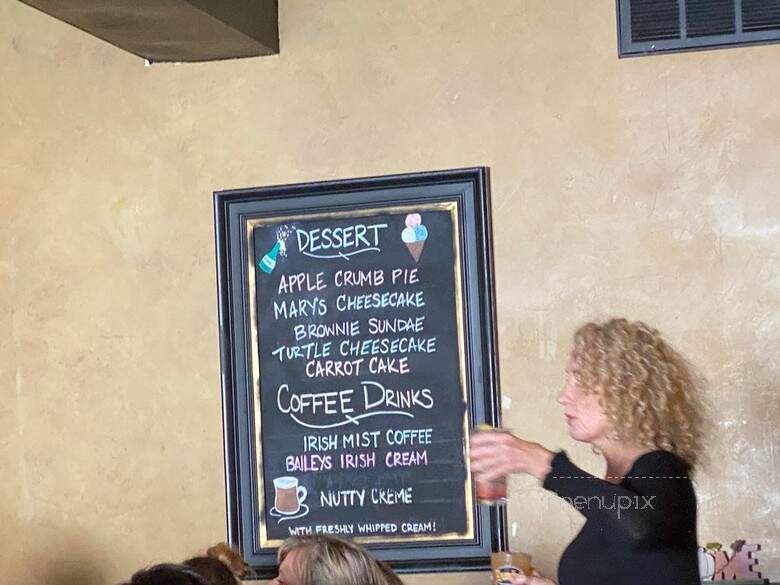 DESSERT
APPLE CRUMB PIE
MARY'S CHEESECAKE
BROWNIE SUNDAE
TURTLE CHEESECAKE
CARROT CAKE
COFFEE DRINKS
IRISH MIST COFFEE
BAILEYS IRISH CREAM
NUTTY CREME
WITH FRESHLY WHIPPED CREAM!
menupix